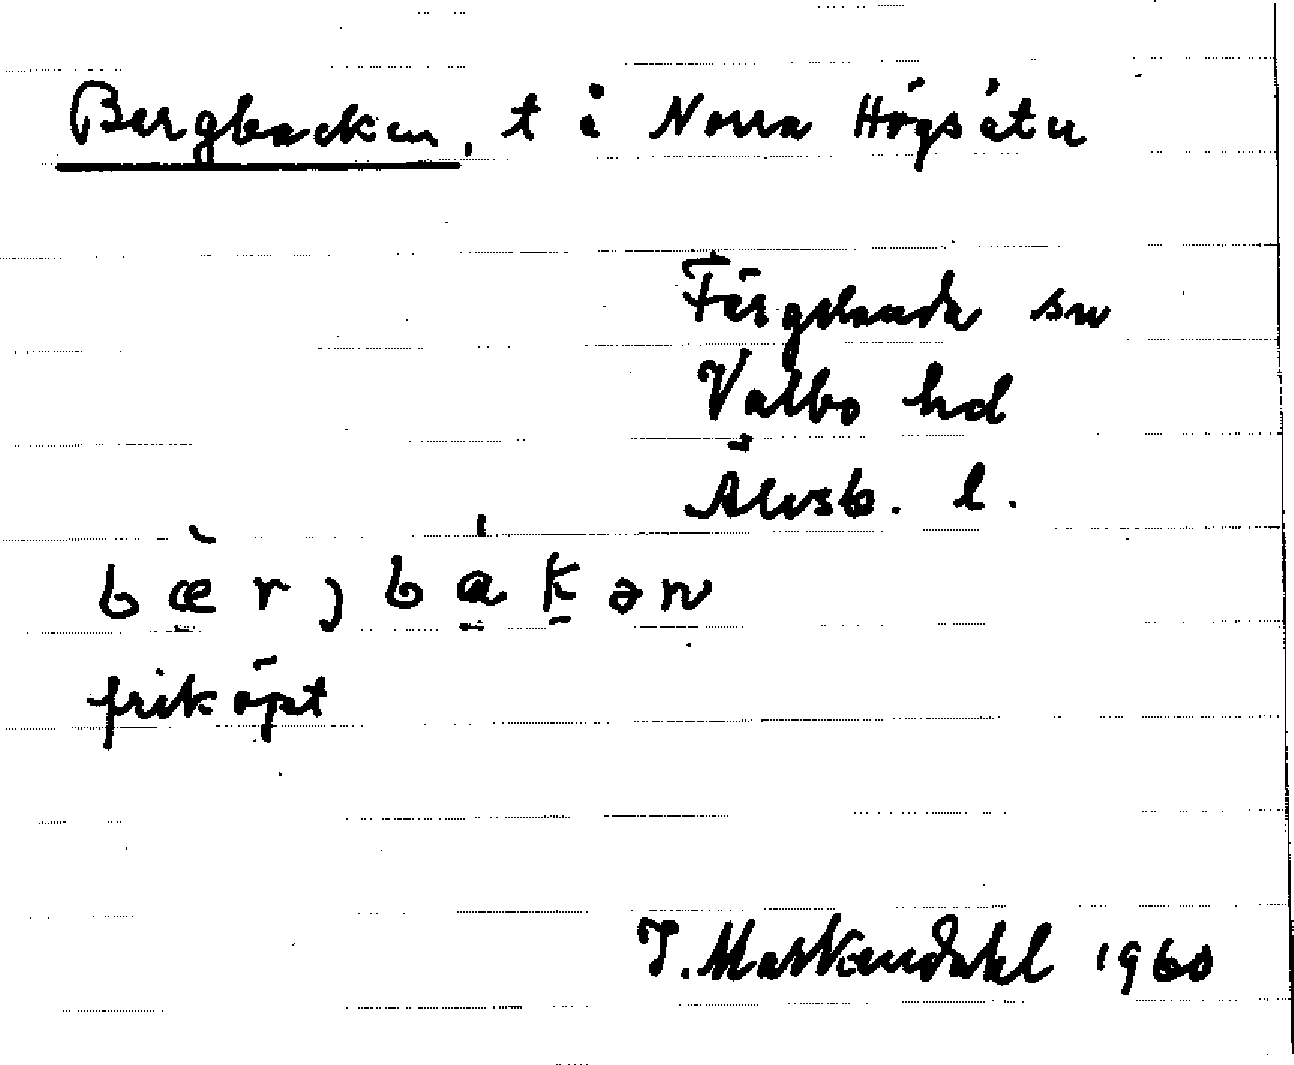 Bergbacken, t i Norra Högsäter
Färgelanda sn
Valbo hd
Älvsb. l.
bæ̀rȷbákən
friköpt
1960